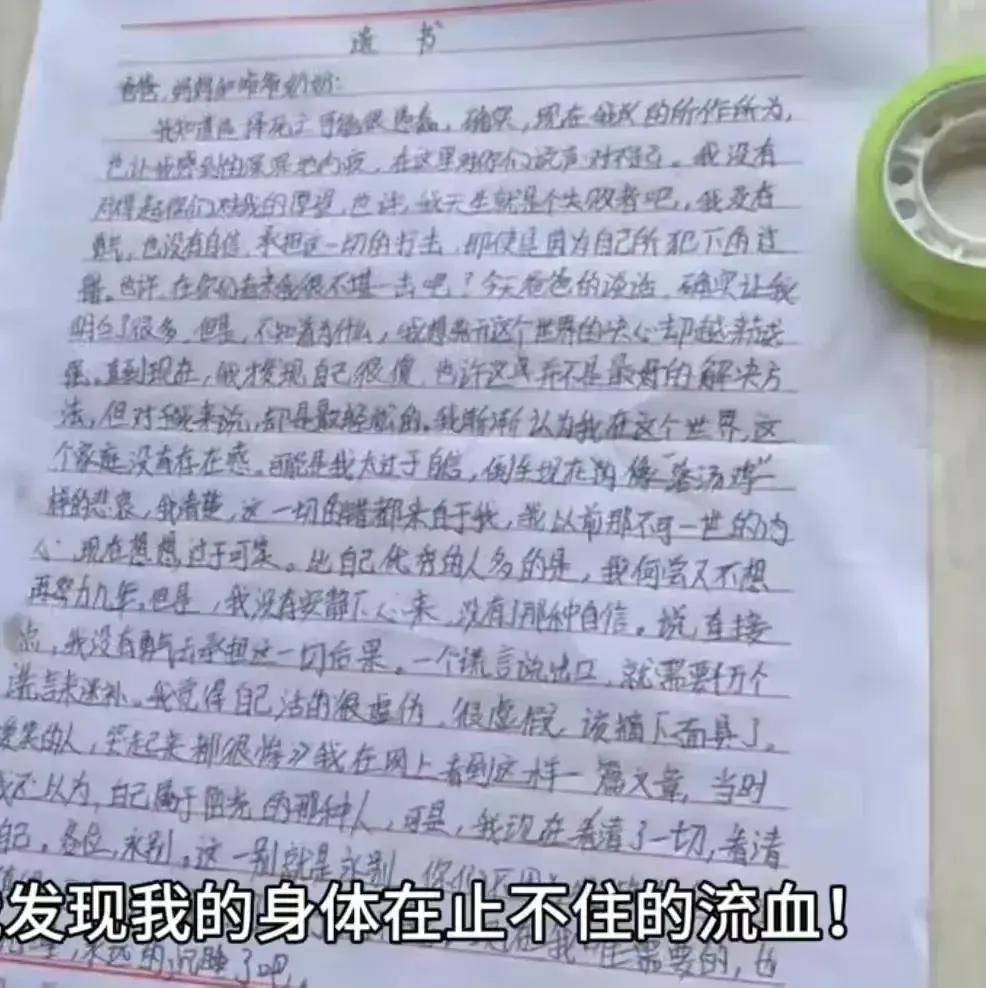 遗 书
爸爸,妈妈和爷爷奶奶:
我知道选择死亡可能很愚蠢,确实,现在我的所作所为,
也让我感到的深深地内疚,在这里对你们说声对不起。我没有
对得起你们对我的厚望,也许,我天生就是个失败者吧,我没有
勇气,也没有自信,承担这一切的打击,即使是因为自己所犯下的过
错。也许,在你们看来我很不堪一击吧?今天爸爸的谈话,确实让我
明白了很多,但是,不知为什么,我想离开这个世界的决心却越来越
强。直到现在,我才发现自己很傻,也许这并不是最好的解决方
法,但对于我来说,却是最轻松的。我渐渐认为我在这个世界,这
个家庭没有存在感。可能是我太过于自信,倒至现在沟像“落汤鸡”一
样的悲哀,我清楚,这一切的错都来自于我,我以前那不可一世的内
心,现在想想过于可笑。比自己优秀的人多的是,我何尝又不想
再努力几年,但是,我没有安静下心来,没有了那种自信。说直接
点,我没有勇气去承担这一切后果。一个谎言说出口,就需要千万个
谎言来递补。我觉得自己活的很虚伪,很虚假,该摘下面具了。
爱笑的人,笑起来都很惨》我在网上看到这样一篇文章,当时
我还以为,自己属于阳光的那种人,可是,我现在看清了一切,看清
自己。各位,永别。这一别就是永别,你们不用
发现我的身体在止不住的流血!
需要的,也
永远的沉睡了吧。